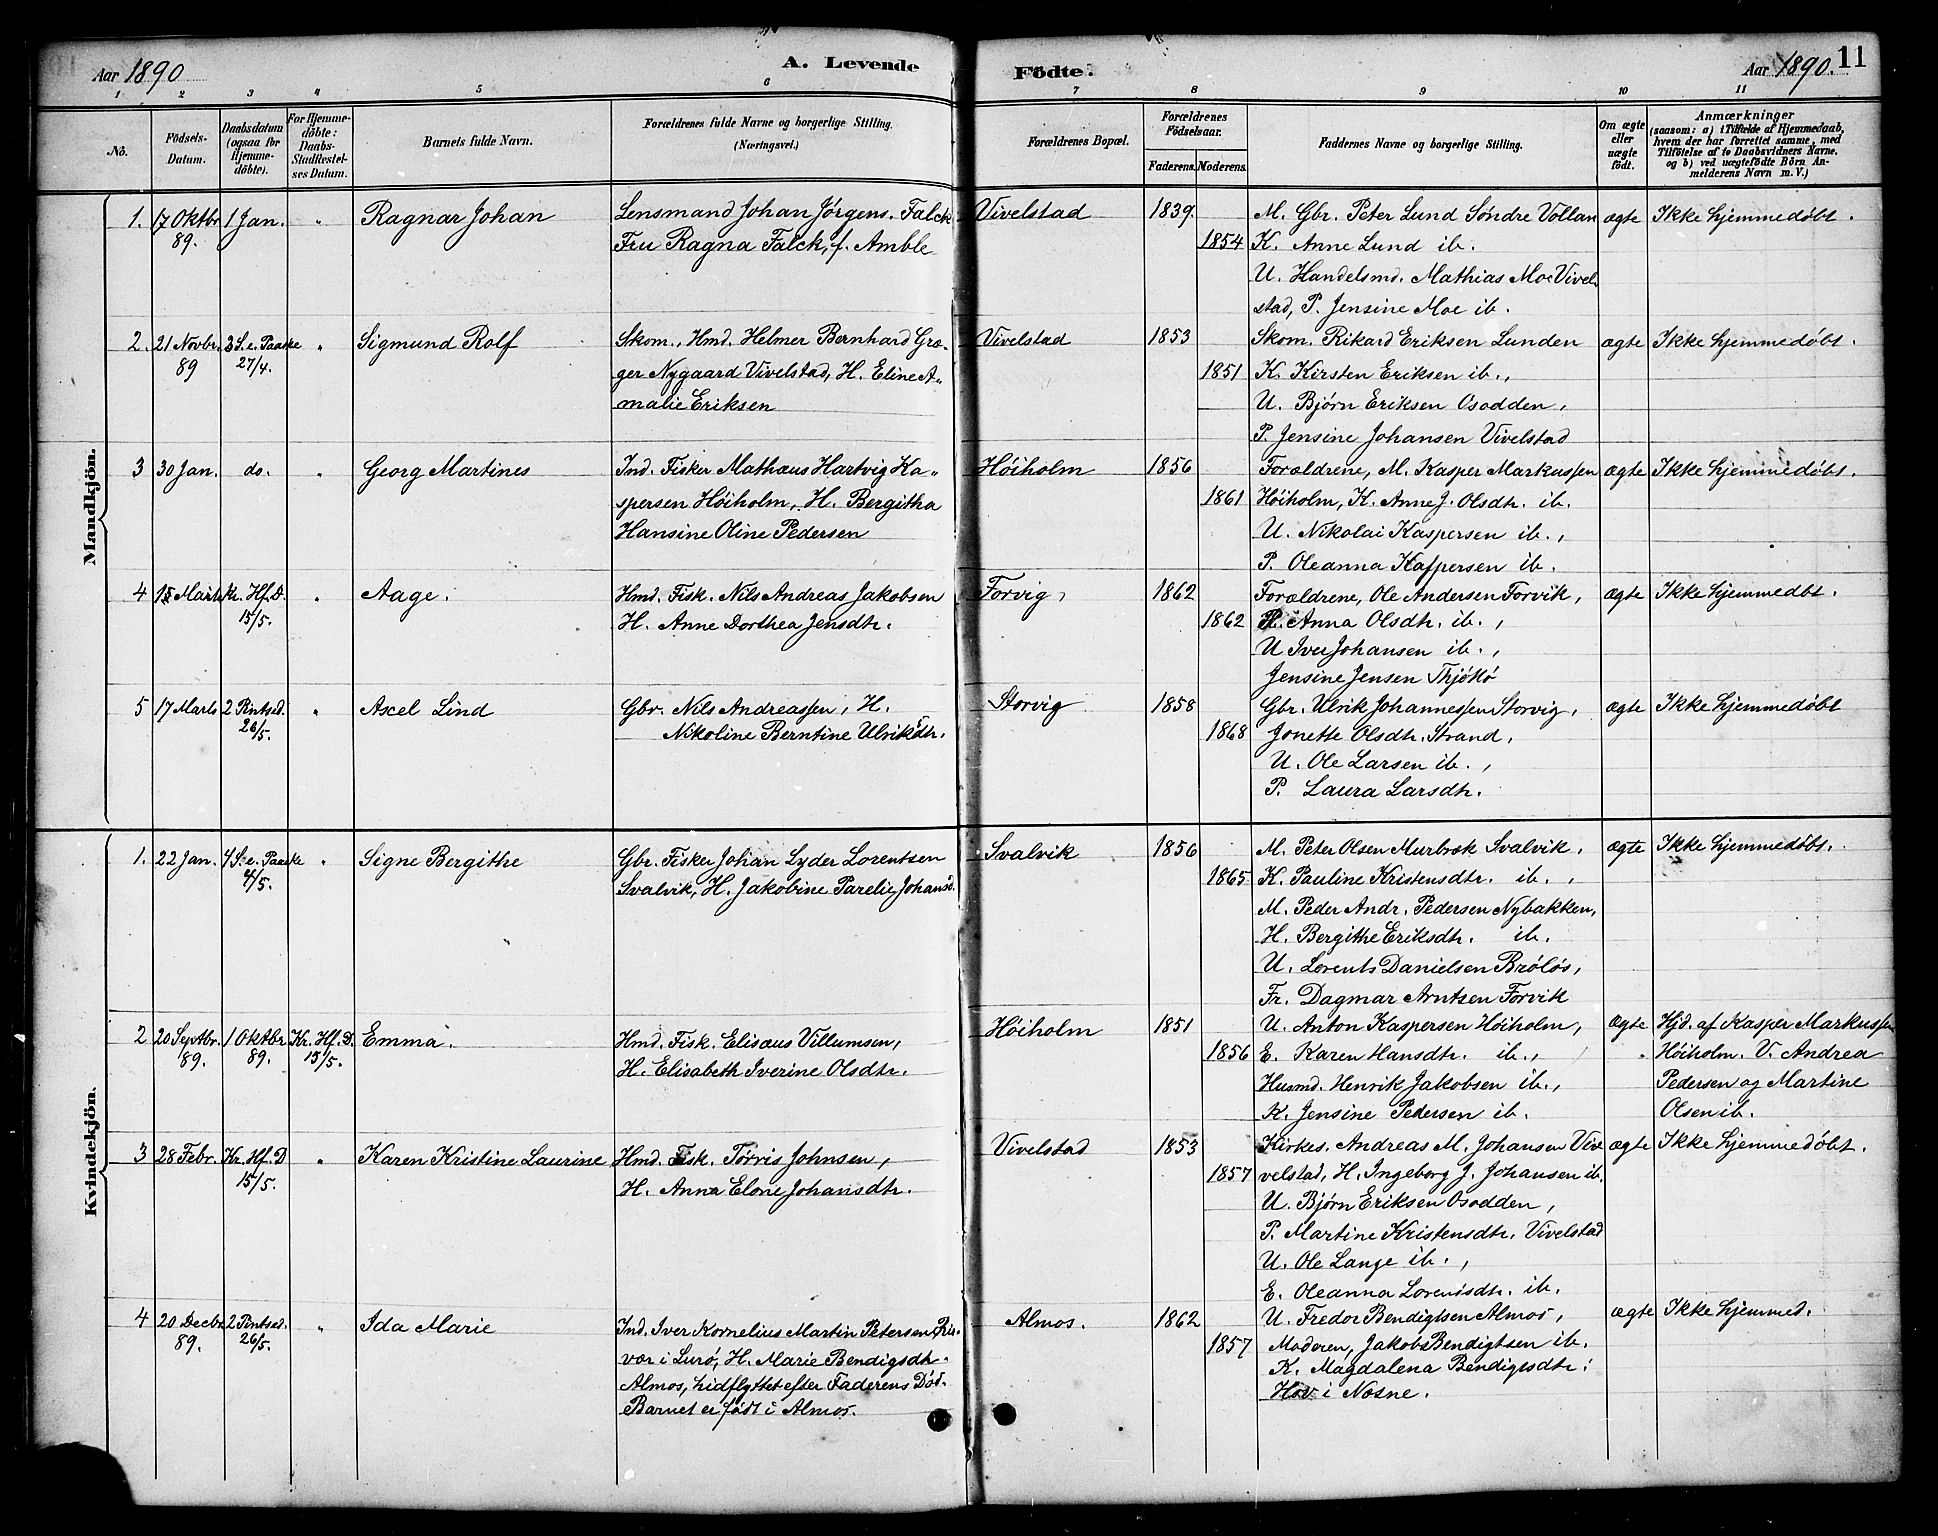 Aar 1890
A. Levende
Födte.
Aar 1890. 11
1 2 3 4 5 6 7 8 9 10 11
No.
Födsels-
Datum.
Daabsdatum
(ogsaa for
Hjemme-
döbte).
For Hjemme-
döbte:
Daabs-
Stadfæstel-
ses Datum.
Barnets fulde Navn.
Forældrenes fulde Navne og borgerlige Stilling.
(Næringsvei.)
Forældrenes Bopæl.
Forældrenes
Födselsaar.
Faderens. Moderens.
Faddernes Navne og borgerlige Stilling.
Om ægte
eller
uægte
födt.
Anmærkninger
(saasom: a) i Tilfælde af Hjemmedaab,
hvem der har forrettet samme, med
Tilföielse af to Daabsvidners Navne,
og b) ved uægtefödte Börn An-
melderens Navn m. V.)
Mandkjön.
1. 17 Oktbr 89. 1 Jan. " Ragnar Johan
Lensmand Johan Jørgens. Falck
Fru Ragna Falck, f. Amble
Vivelstad 1839 1854
M. Gbr. Peter Lund Søndre Vollan
K. Anne Lund ib.
U. Handelsmd. Mathias Moe Vivel-
stad, P. Jensine Moe ib.
ægte Ikke hjemmedøbt.
2. 21 Novbr. 89 3 S. e. Paaske 27/4. " Sigmund Rolf
Skom., Hmd. Helmer Bernhard Græ-
ger Nygaard Vivelstad, H. Eline A-
malie Eriksen
Vivelstad 1853 1851
Skom. Rikard Eriksen Lunden
K. Kirsten Eriksen ib.,
U. Bjørn Eriksen Osodden,
P. Jensine Johansen Vivelstad
ægte Ikke hjemmedøbt.
3 30 Jan. do. " Georg Martines
Ind. Fisker Mathæus Hartvig Ka-
spersen Høiholm, H. Bergitha
Hansine Oline Pedersen
Høiholm 1856 1861
Forældrene, M. Kasper Markussen
Høiholm, K. Anne J. Olsdtr. ib.
U. Nikolai Kaspersen ib.,
P. Oleanna Kaspersen ib.
ægte Ikke hjemmedøbt.
4 Marts Kr. Hf. D. 15/5. " Aage.
Hmd. Fisk. Nils Andreas Jakobsen
H. Anne Dorthea Jensdtr.
Forvig, 1862 1862
Forældrene, Ole Andersen Forvik,
Anna Olsdtr. ib.,
U Iver Johansen ib.,
Jensine Jensen Thjøtø
ægte Ikke hjemmedøbt.
5 17 Marts 2 Pintsed. 26/5. " Axel Lind
Gbr. Nils Andreassen, H.
Nikoline Berntine Ulriksdtr.
Storvig 1858 1868
Gbr. Ulrik Johannessen Storvig,
Jonette Olsdtr. Strand,
U. Ole Larsen ib.,
P. Laura Larsdtr.
ægte Ikke hjemmedøbt
Kvindekjön.
1. 22 Jan. 4 S. e. Paaske 4/5. " Signe Bergithe
Gbr. Fisker Johan Lyder Lorentsen
Svalvik, H. Jakobine Parelie Johansd.
Svalvik 1856 1865
M. Peter Olsen Murbræk Svalvik,
K. Pauline Kristensdtr. ib.,
M. Peder Andr. Pedersen Nybakken,
H. Bergithe Eriksdtr. ib.
U. Lorents Danielsen Brøløs,
Fr. Dagmar Arntsen Forvik
ægte Ikke hjemmedøbt.
2 20 Septbr. 89. 1 Oktbr 89. Kr. Hf. D. 15/5. Emma.
Hmd. Fisk. Elisæus Villumsen,
H. Elisabeth Iverine Olsdtr.
Høiholm 1851 1856
U. Anton Kaspersen Høiholm,
E. Karen Hansdtr. ib.,
Husmd. Henrik Jakobsen ib.,
K. Jensine Pedersen ib.
ægte Hjd. af Kasper Markussen
Høiholm. V. Andrea
Pedersen og Martine
Olsen ib.
3 28 Febr. Kr. Hf. D 15/5. " Karen Kristine Laurine
Hmd. Fisk. Tørris Johnsen,
H. Anna Elone Johansdtr.
Vivelstad 1853 1857
Kirkes. Andreas M. Johansen Vi-
velstad, H. Ingeborg J. Johansen ib.
U. Bjørn Eriksen Osodden,
P. Martine Kristensdtr. Vivelstad
U. Ole Lange ib.,
E. Oleanna Lorentsdtr. ib.
ægte Ikke hjemmedøbt.
4 20 Decbr 89. 2 Pintsed. 26/5. " Ida Marie
Ind. Iver Kornelius Martin Petersen Ris-
vær i Lurø, H. Marie Bendigsdtr.
Almos, hidflyttet efter Faderens Død.
Barnet er født i Almos.
Almos. 1862 1857
U. Fredor Bendigtsen Almos,
Moderen, Jakob Bendigtsen ib.
K. Magdalena Bendigtsdtr.
Hov i Næsne.
ægte Ikke hjemmed.